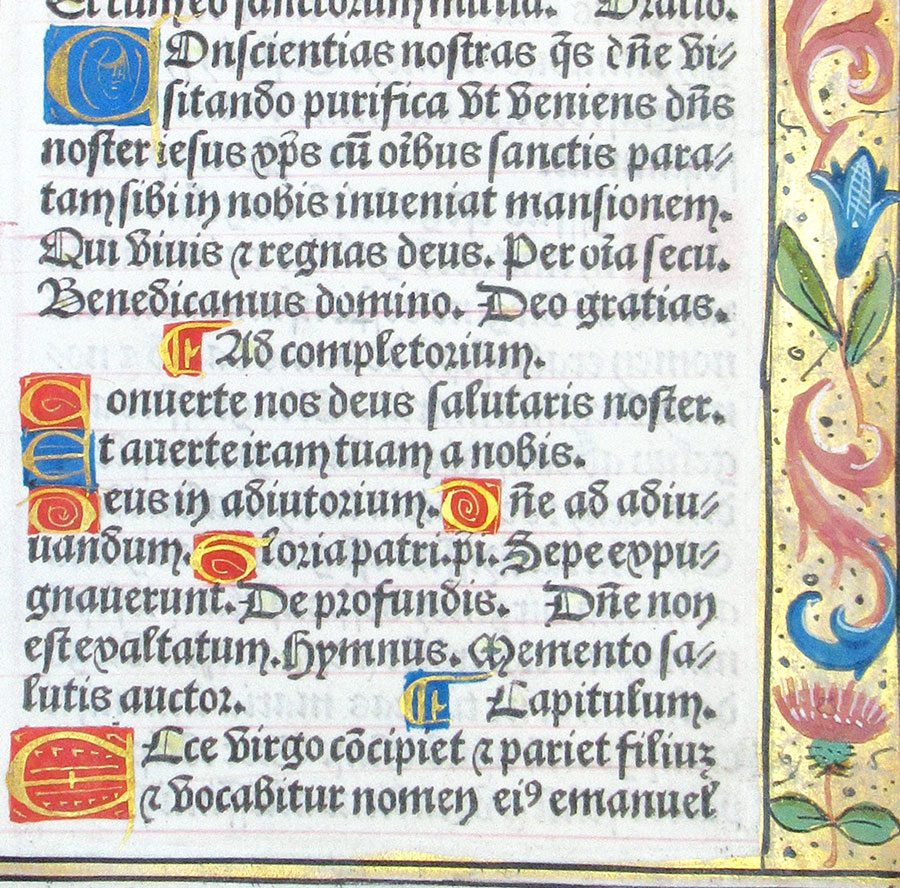 Et cum eo sanctorum milia. Oratio.
COnscientias nostras q̃s dñe vi⸗
sitando purifica vt veniens dñs
noster iesus xp̃s cũ oĩbus sanctis para⸗
tam sibi in nobis inueniat mansionem.
Qui viuis ⁊ regnas deus. Per oĩa secu.
Benedicamus domino. Deo gratias.
¶ Ad completorium.
Conuerte nos deus salutaris noster.
Et auerte iram tuam a nobis.
Deus in adiutorium. Dñe ad adiu⸗
uandum. Gloria patri. p̃i. Sepe expu⸗
gnauerunt. De profundis. Dñe non
est exaltatum. Hymnus. Memento sa⸗
lutis auctor. ¶ Capitulum.
ECce virgo cõcipiet ⁊ pariet filiuꝫ
⁊ vocabitur nomen eiꝰ emanuel